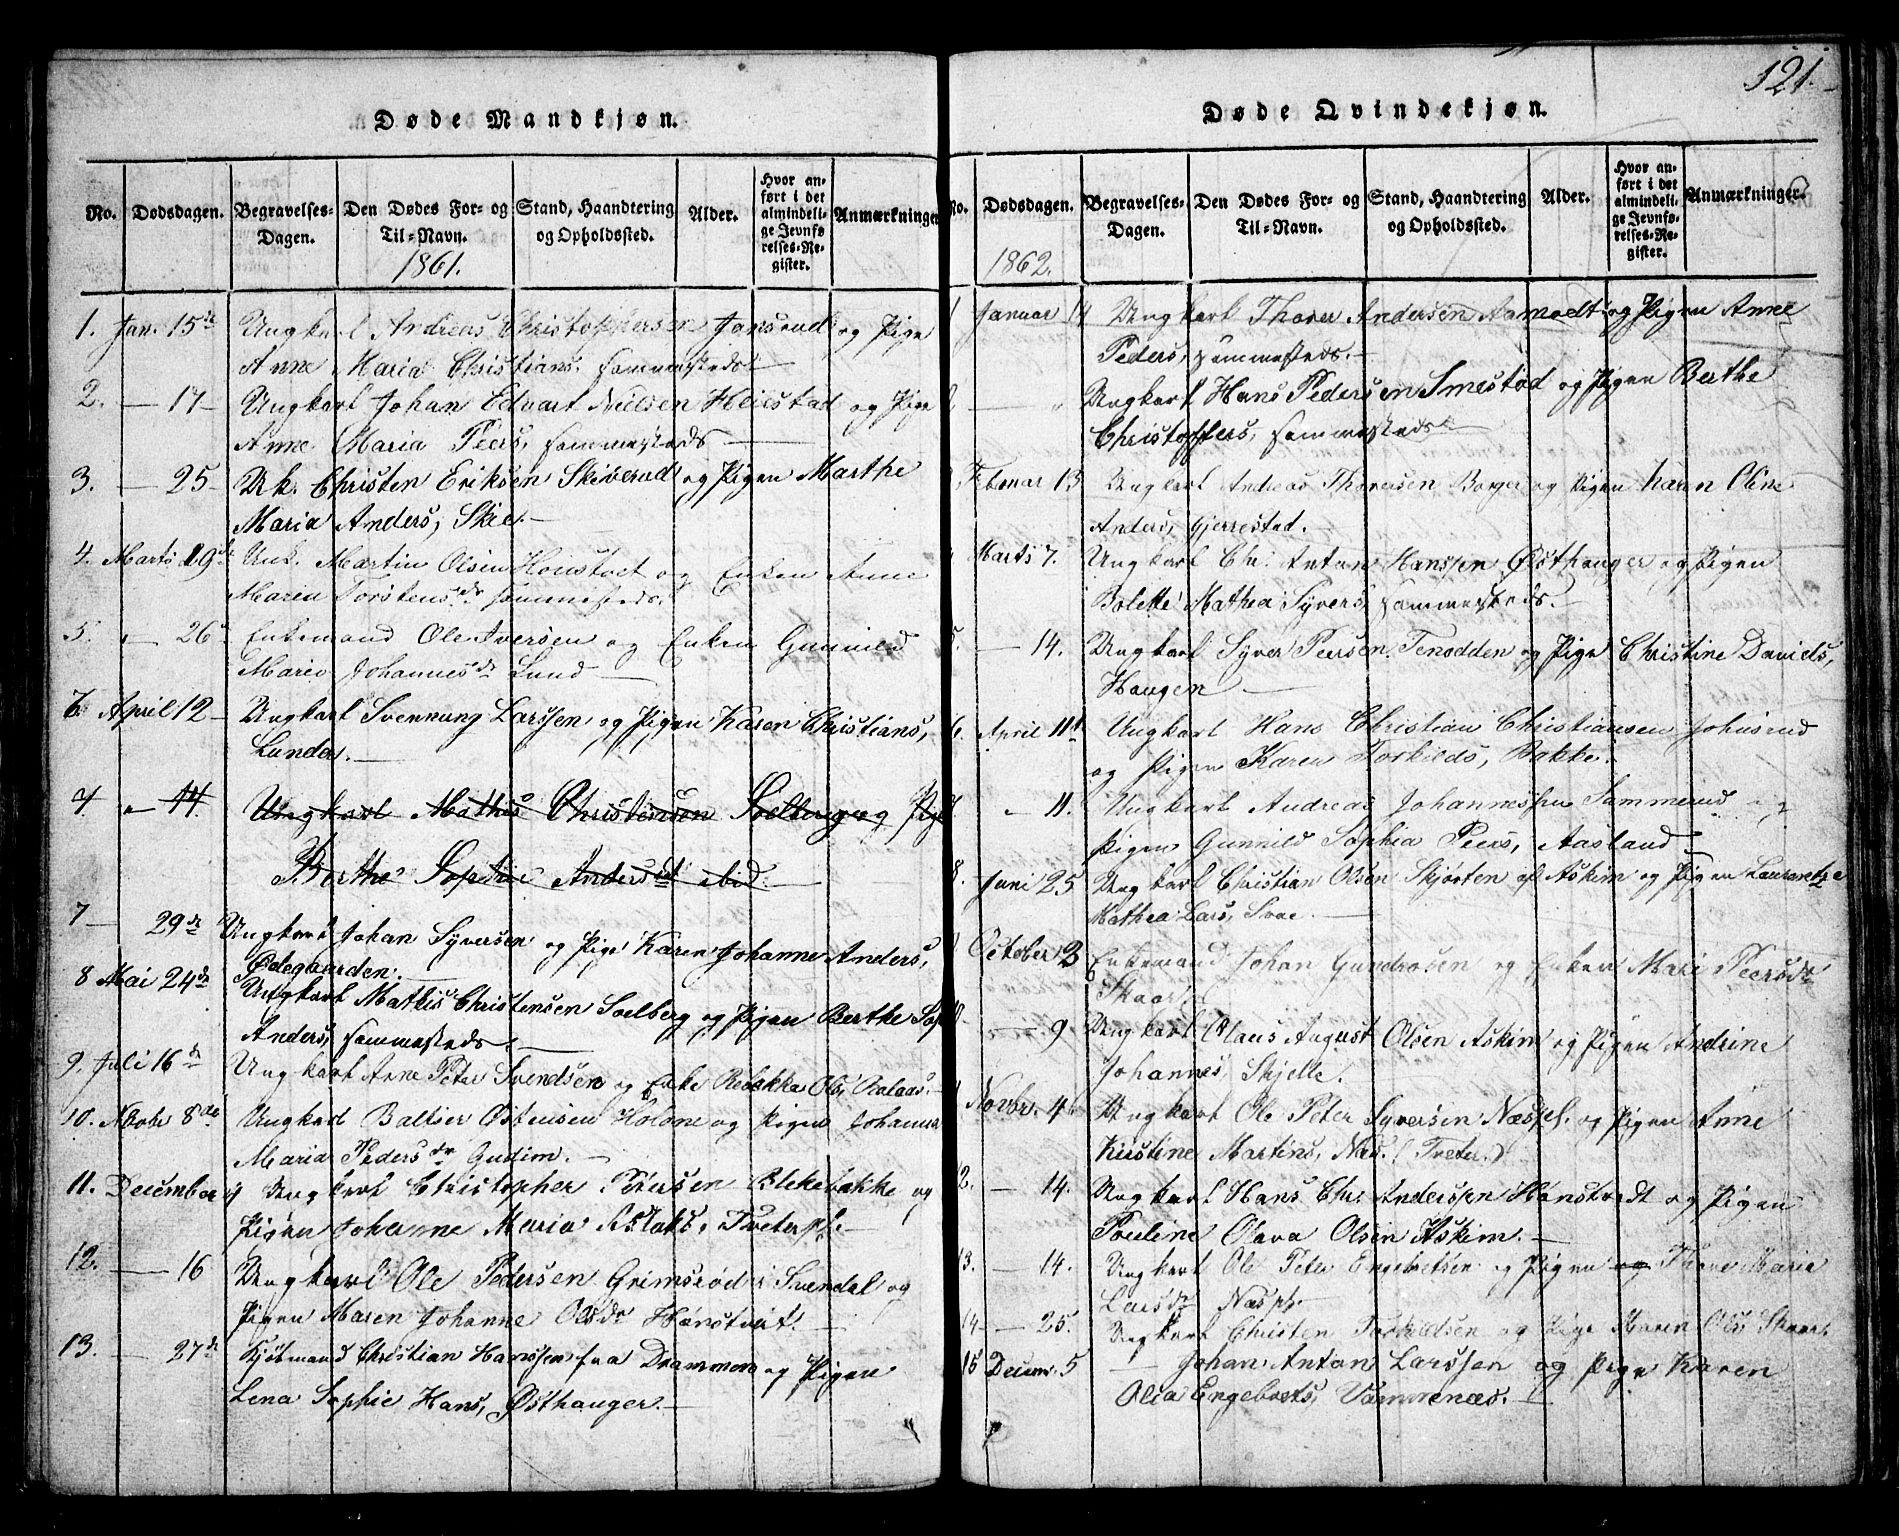 Døde Mandkjøn.
No. Dødsdagen. Begravelses-Dagen. Den Dødes For- og Til-Navn. Stand, Haandtering og Opholdssted. Alder. Hvor anført i det almindelige Jevnførelses-Register. Anmærkninger
1861.
1. Jan. 15de Ungkarl Andreas Christophersen Jonsrud og Pige
Anne Maria Christians. sammesteds
2. — 17 — Ungkarl Johan Edvart Nielsen Heiestad og Pige
Anne Maria Peers, sammesteds —
3. — 25 — Uk. Christen Eriksen Skiverud og Pigen Marthe
Maria Anders, Skie. —
4. Marts 19de Unk. Martin Olsen Honstvet og Enken Anne
Maria Torstensdr sammesteds.
5. „ — 26 Enkemand Ole Iversen og Enken Gunnild
Maria Johannesdr Lund —
6 April 12 — Ungkarl Svennung Larssen og Pigen Karen Christians,
Lunder. —
7 „ — 14. Ungkarl Mathis Christensen Soelberg og Pige
Berthe Sophie Andersdt ibid. —
7 — 29de Ungkarl Johan Syversen og Pige Karen Johanne Anders,
Ødegaarden. —
8 Mai 24de Ungkarl Mathis Christensen Soelberg og Pigen Berthe Sop
Anders, sammesteds. —
9. Juli 16de Ungkarl Arne Peter Svendsen og Enke Rebekka Ols, Ralaas. —
10. Novbr 8de Ungkarl Baltser Østensen Holone og Pigen Johanna
Maria Pedersdr Gudim. —
11. December 9 Ungkarl Christopher Petersen Blekebakke og
Pigen Johanne Maria Aslaks, Tveterpl. —
12. — 16 Ungkarl Ole Pedersen Grimsrød i Svendal og
Pigen Maren Johanne Olsdr Hønstvet. —
13. — 27de Kjøbmand Christian Hanssen fra Drammen og Pigen
Lena Sophie Hans, Østhauger. —
121.
Døde Qvindekjøn.
No. Dødsdagen. Begravelses-Dagen. Den Dødes For- og Til-Navn. Stand, Haandtering og Opholdssted. Alder. Hvor anført i det almindelige Jevnførelses-Register. Anmærkninger.
1862.
1 Januar 14 Ungkarl Thorer Andersen Aamodt og Pigen Anne
Peders, sammesteds. —
2 — „ Ungkarl Hans Pedersen Smestød og Pigen Berthe
Christoffers, sammesteds —
Februar 13 Ungkarl Andreas Thoresen Borger og Pigen Karen Oline
Anders, Gjerrestad. —
Marts 7. Ungkarl Chr. Anton Hanssen Østhauger og Pigen
Bolette Mathea Syvers, sammesteds. —
5. — 14. Ungkarl Syver Peersen Tenodden og Pige Christine Davids,
Haugen —
6. April 11 Ungkarl Hans Christian Christiansen Johnsrud
og Pigen Karen Torkilds, Bakke.
7. „ 11. Ungkarl Andreas Johannessen Sammerud og
Pigen Gunnild Sophia Peers, Aasland —
8. Juni 25 Ungkarl Christian Olsen Skjørten af Askim og Pigen Laurantze
Mathea Lars, Svae. —
October 3 Enkemand Johan Gundrosen og Enken Mari Peersdr
Skaar.
10 — 9 Ungkarl Olaus August Olsen Askim og Pigen Andrine
Johannes, Skjelle.
Novbr. 4 Ungkarl Ole Peter Syversen Næspl. og Pigen Anne
Kirstine Martins, Næs. (Tveter.)
2. — 14. Ungkarl Hans Chr. Anderssen Hønstvedt og Pigen
Pouline Olava Olsen Askim. —
13. — 14. Ungkarl Ole Peter Engebretsen og Pigen og Thore Maria
Larsdr Næspl.
14 — 25. Ungkarl Christen Torkildsen og Pige Maren Ols Skaar.
15 Decmr. 5 — Johan Anton Larssen og Pige Karen
Olia Engebrets, Vammenæs. —